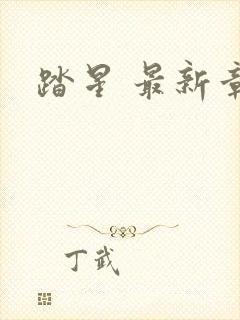 踏星 最新章
丁武